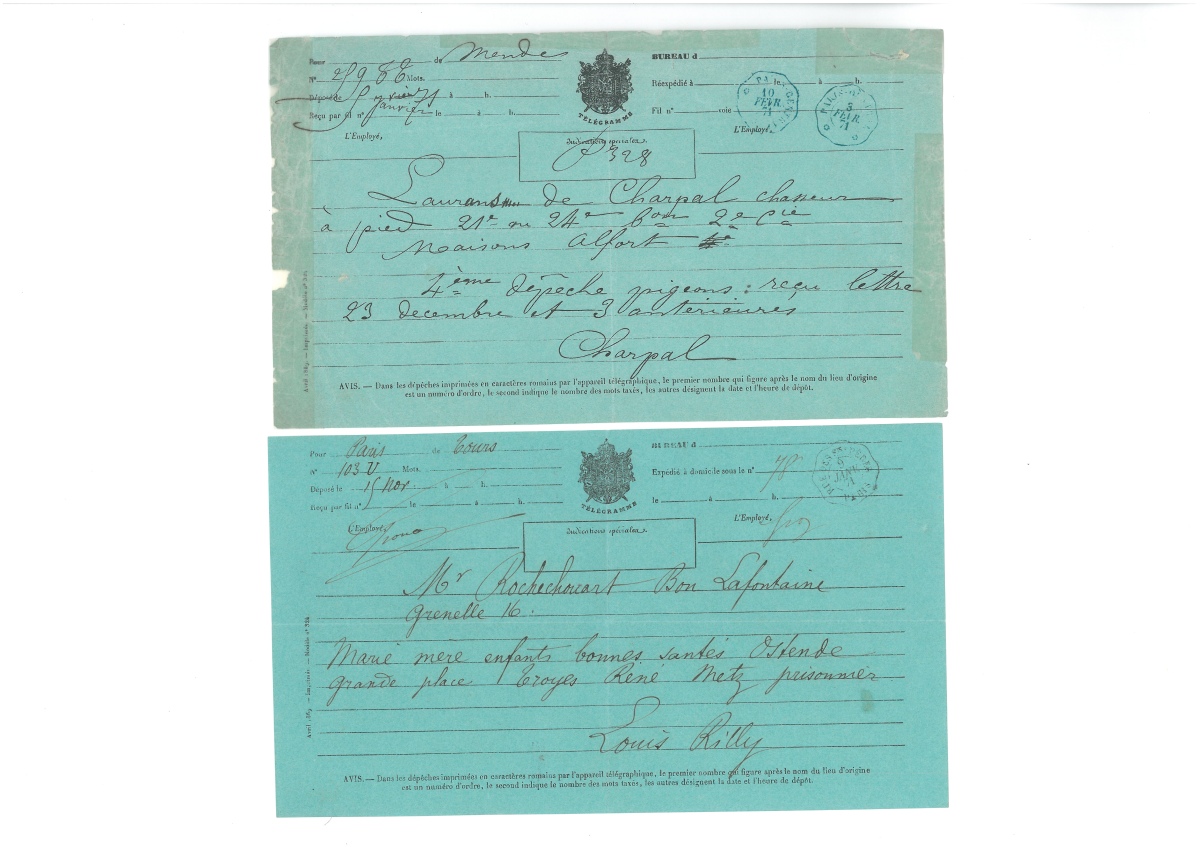 Pour de Mende
N° 259 86 Mots.
Déposé le 5 Janvier 71 à h.
Reçu par fil n° le à h.
L'Employé,
TÉLÉGRAMME
BUREAU d
Réexpédié à le à h.
Fil n° voie
L'Employé,
10
FÉVR.
71
5
FÉVR.
71
Indications spéciales.
P 328
de Charpal chasseur
à pied 21e ou 24e bon 2e Cie
Maisons Alfort
4ème dépêche pigeons : reçu lettre
23 decembre et 3 antérieures
Charpal
AVIS. — Dans les dépêches imprimées en caractères romains par l'appareil télégraphique, le premier nombre qui figure après le nom du lieu d'origine
est un numéro d'ordre, le second indique le nombre des mots taxés, les autres désignent la date et l'heure de dépôt.
Pour Paris de Tours
N° 103 V Mots.
Déposé le 15 Nov à h.
Reçu par fil n° le à h.
L'Employé,
TÉLÉGRAMME
BUREAU d
Expédié à domicile sous le n°
le à h.
L'Employé,
JANV.
71
Indications spéciales.
Mr Rochechouart Bon Lafontaine
Grenelle 16.
Marie mère enfants bonnes santés Ostende
grande place Troyes René Metz prisonnier
Louis Rilly
AVIS. — Dans les dépêches imprimées en caractères romains par l'appareil télégraphique, le premier nombre qui figure après le nom du lieu d'origine
est un numéro d'ordre, le second indique le nombre des mots taxés, les autres désignent la date et l'heure de dépôt.